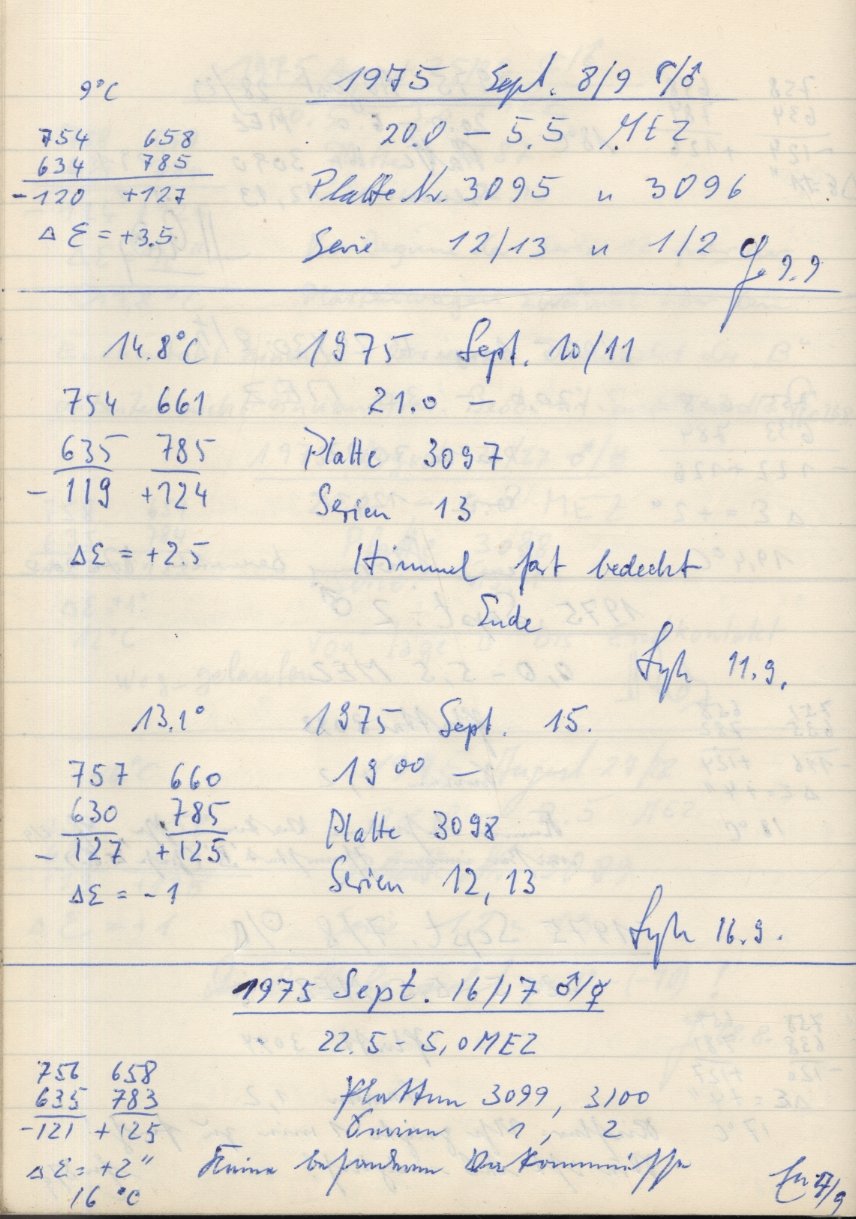 9°C
1975 Sept. 8/9 ☾/♂
754 658
20.0 – 5.5 MEZ
634 785
-120 +127
Platte Nr. 3095 u 3096
Δ Σ = +3.5
Serie 12/13 u 1/2
9.9
14.8°C
1975 Sept. 10/11
754 661
21.0 –
635 785
Platte 3097
- 119 +124
Serien 13
ΔΣ = +2.5
Himmel fast bedeckt
Ende
11.9.
13.1°
1975 Sept. 15.
757 660
19 00 –
630 785
Platte 3098
- 127 +125
Serien 12, 13
ΔΣ = - 1
16.9.
1975 Sept. 16/17 ♂/☿
22.5 - 5,0 MEZ
756 658
635 783
Platten 3099, 3100
-121 +125
Serien 1, 2
Δ Σ = +2"
Keine besonderen Vorkommnisse
16 °C
17/9